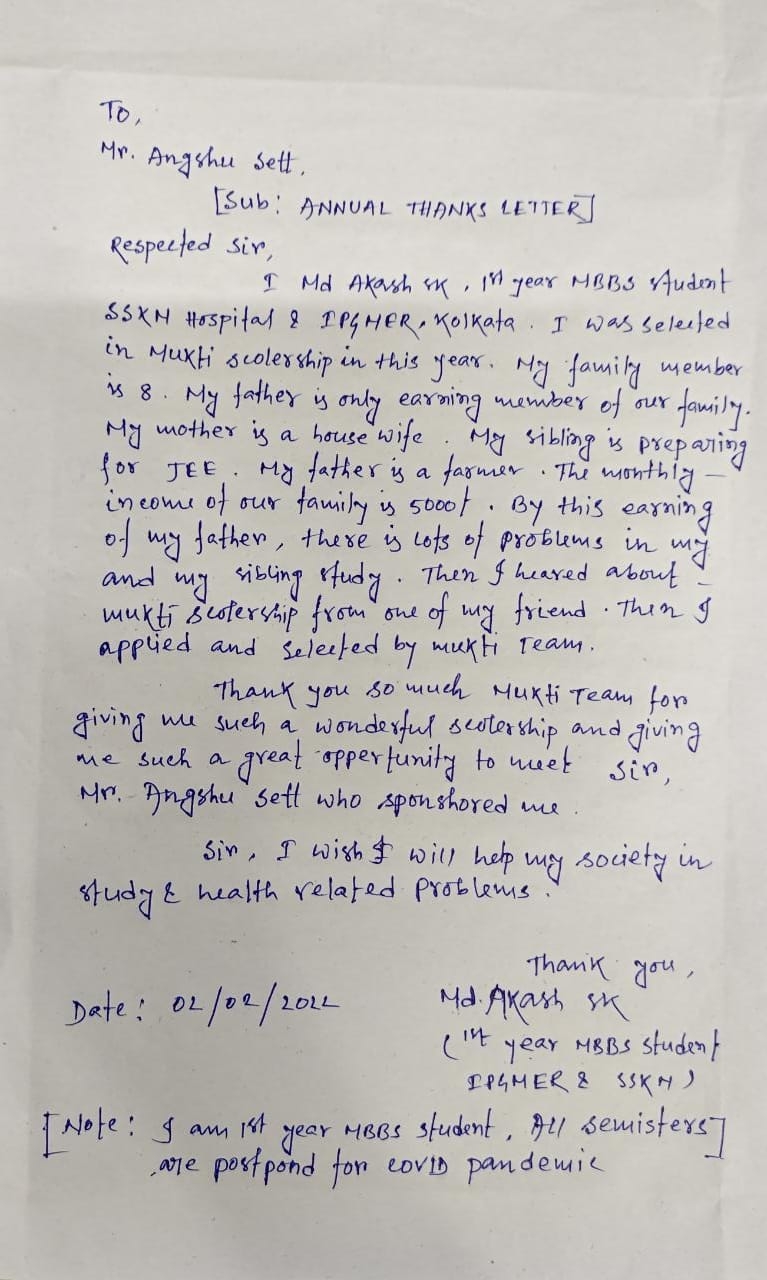 To,
Mr. Angshu Sett,
[Sub: ANNUAL THANKS LETTER]
Respected Sir,
I Md Akash SK, 1st year MBBS student
SSKM Hospital & IPGMER, Kolkata. I was selected
in Mukti scolership in this year. My family member
is 8. My father is only earning member of our family.
My mother is a house wife. My sibling is preparing
for JEE. My father is a farmer. The monthly –
income of our family is 5000/. By this earning
of my father, there is lots of problems in my
and my sibling study. Then I heared about –
mukti scolership from one of my friend. Then I
applied and selected by mukti Team.
Thank you so much Mukti Team for
giving me such a wonderful scolership and giving
me such a great oppertunity to meet sir,
Mr. Angshu Sett who sponshored me.
Sir, I wish I will help my society in
study & health related problems.
Thank you,
Date: 02/02/2022 Md. Akash SK
(1st year MBBS student
IPGMER & SSKM)
[Note: I am 1st year MBBS student, All semisters]
are postpond for covid pandemic